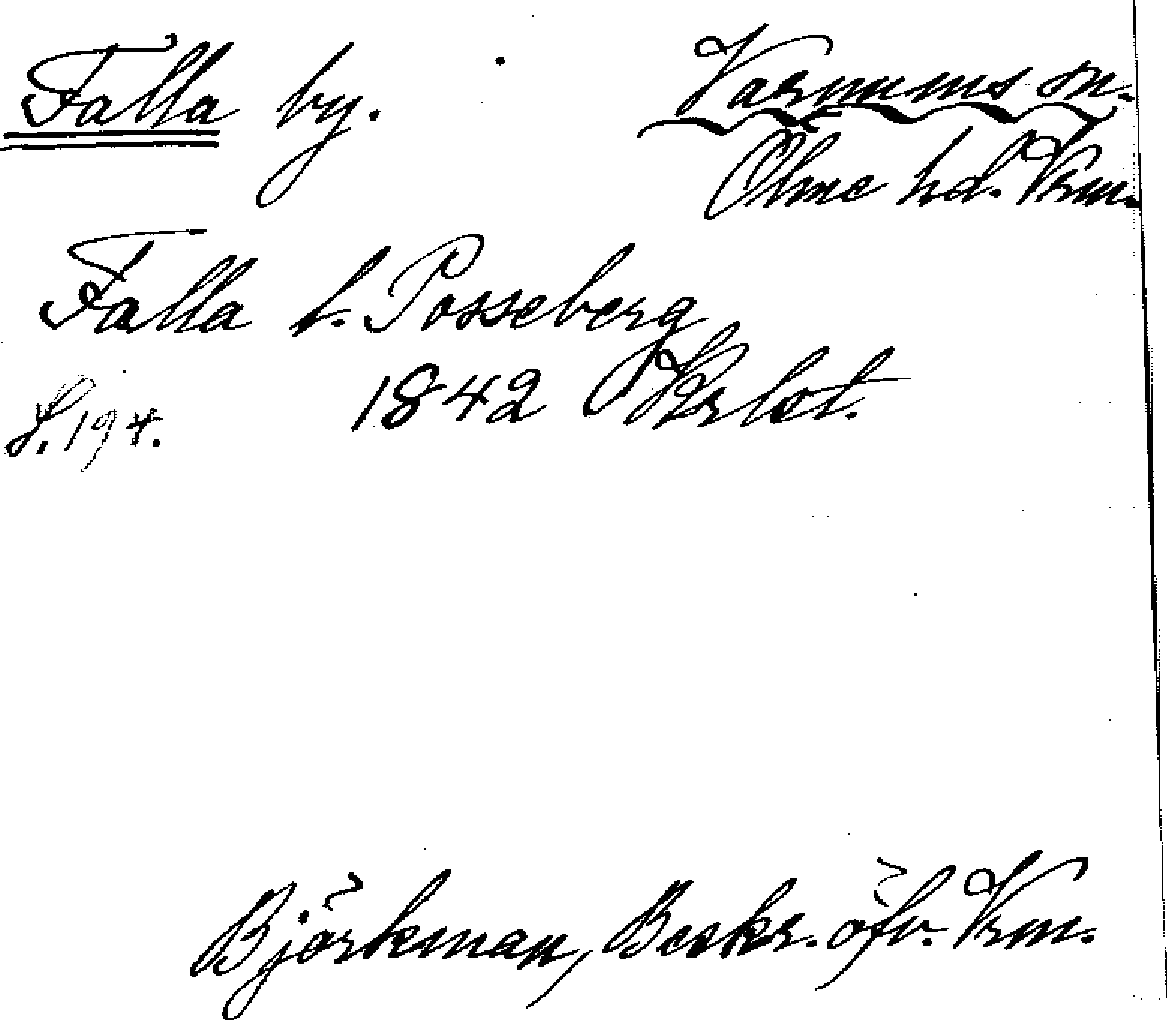 Falla by.
Varnums sn.
Ölme hd. Vrm.
Falla f. Posseberg
1842
S. 194.
Björkman, Beskr. öfv. Vrm.